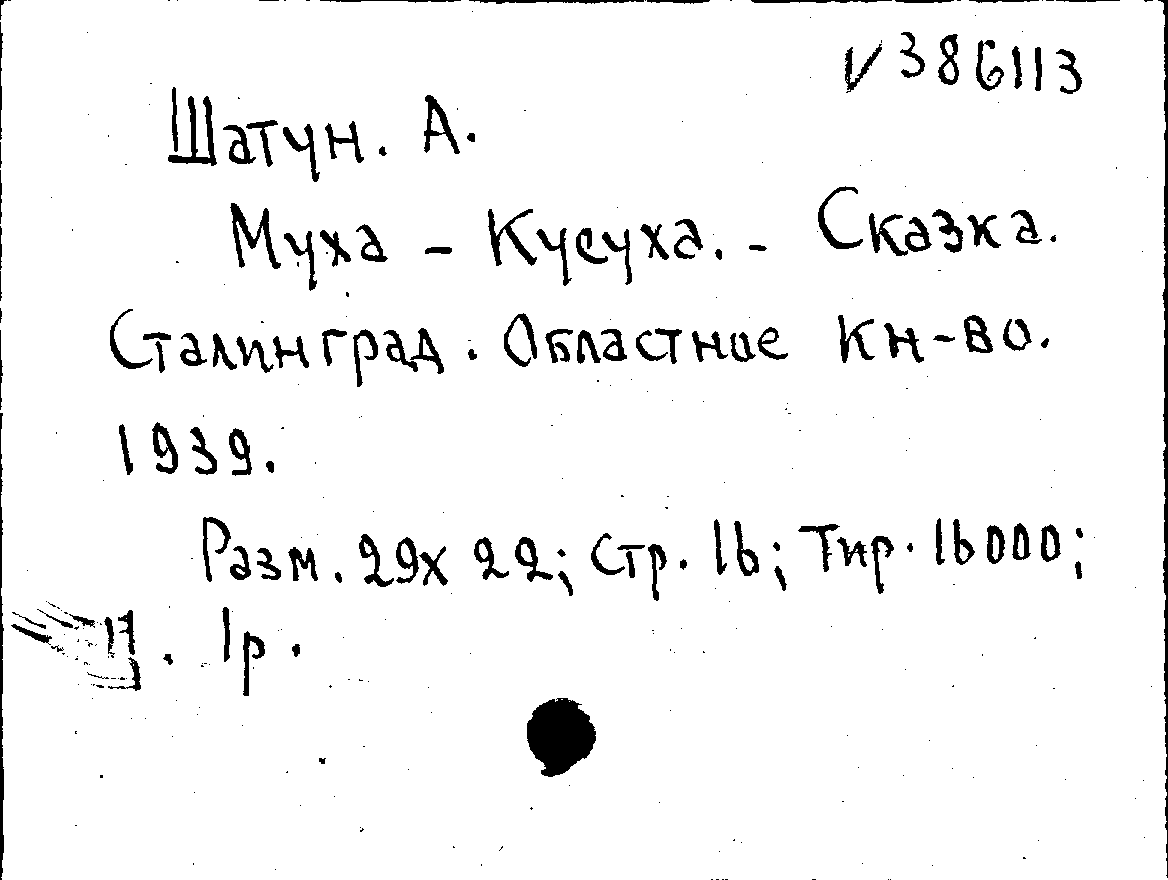 V 386113
Шатун. А.
Муха - Кусуха. - Сказка.
Сталинград. Областное кн-во.
1939.
Разм. 29х 22; Стр. 16; Тир. 16000;
Ц. 1р.